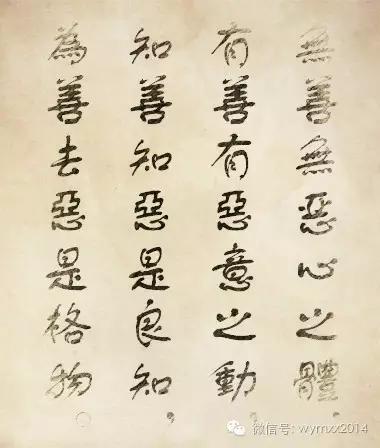 無善無惡心之體
有善有惡意之動
知善知惡是良知
為善去惡是格物
微信号: wymxx2014